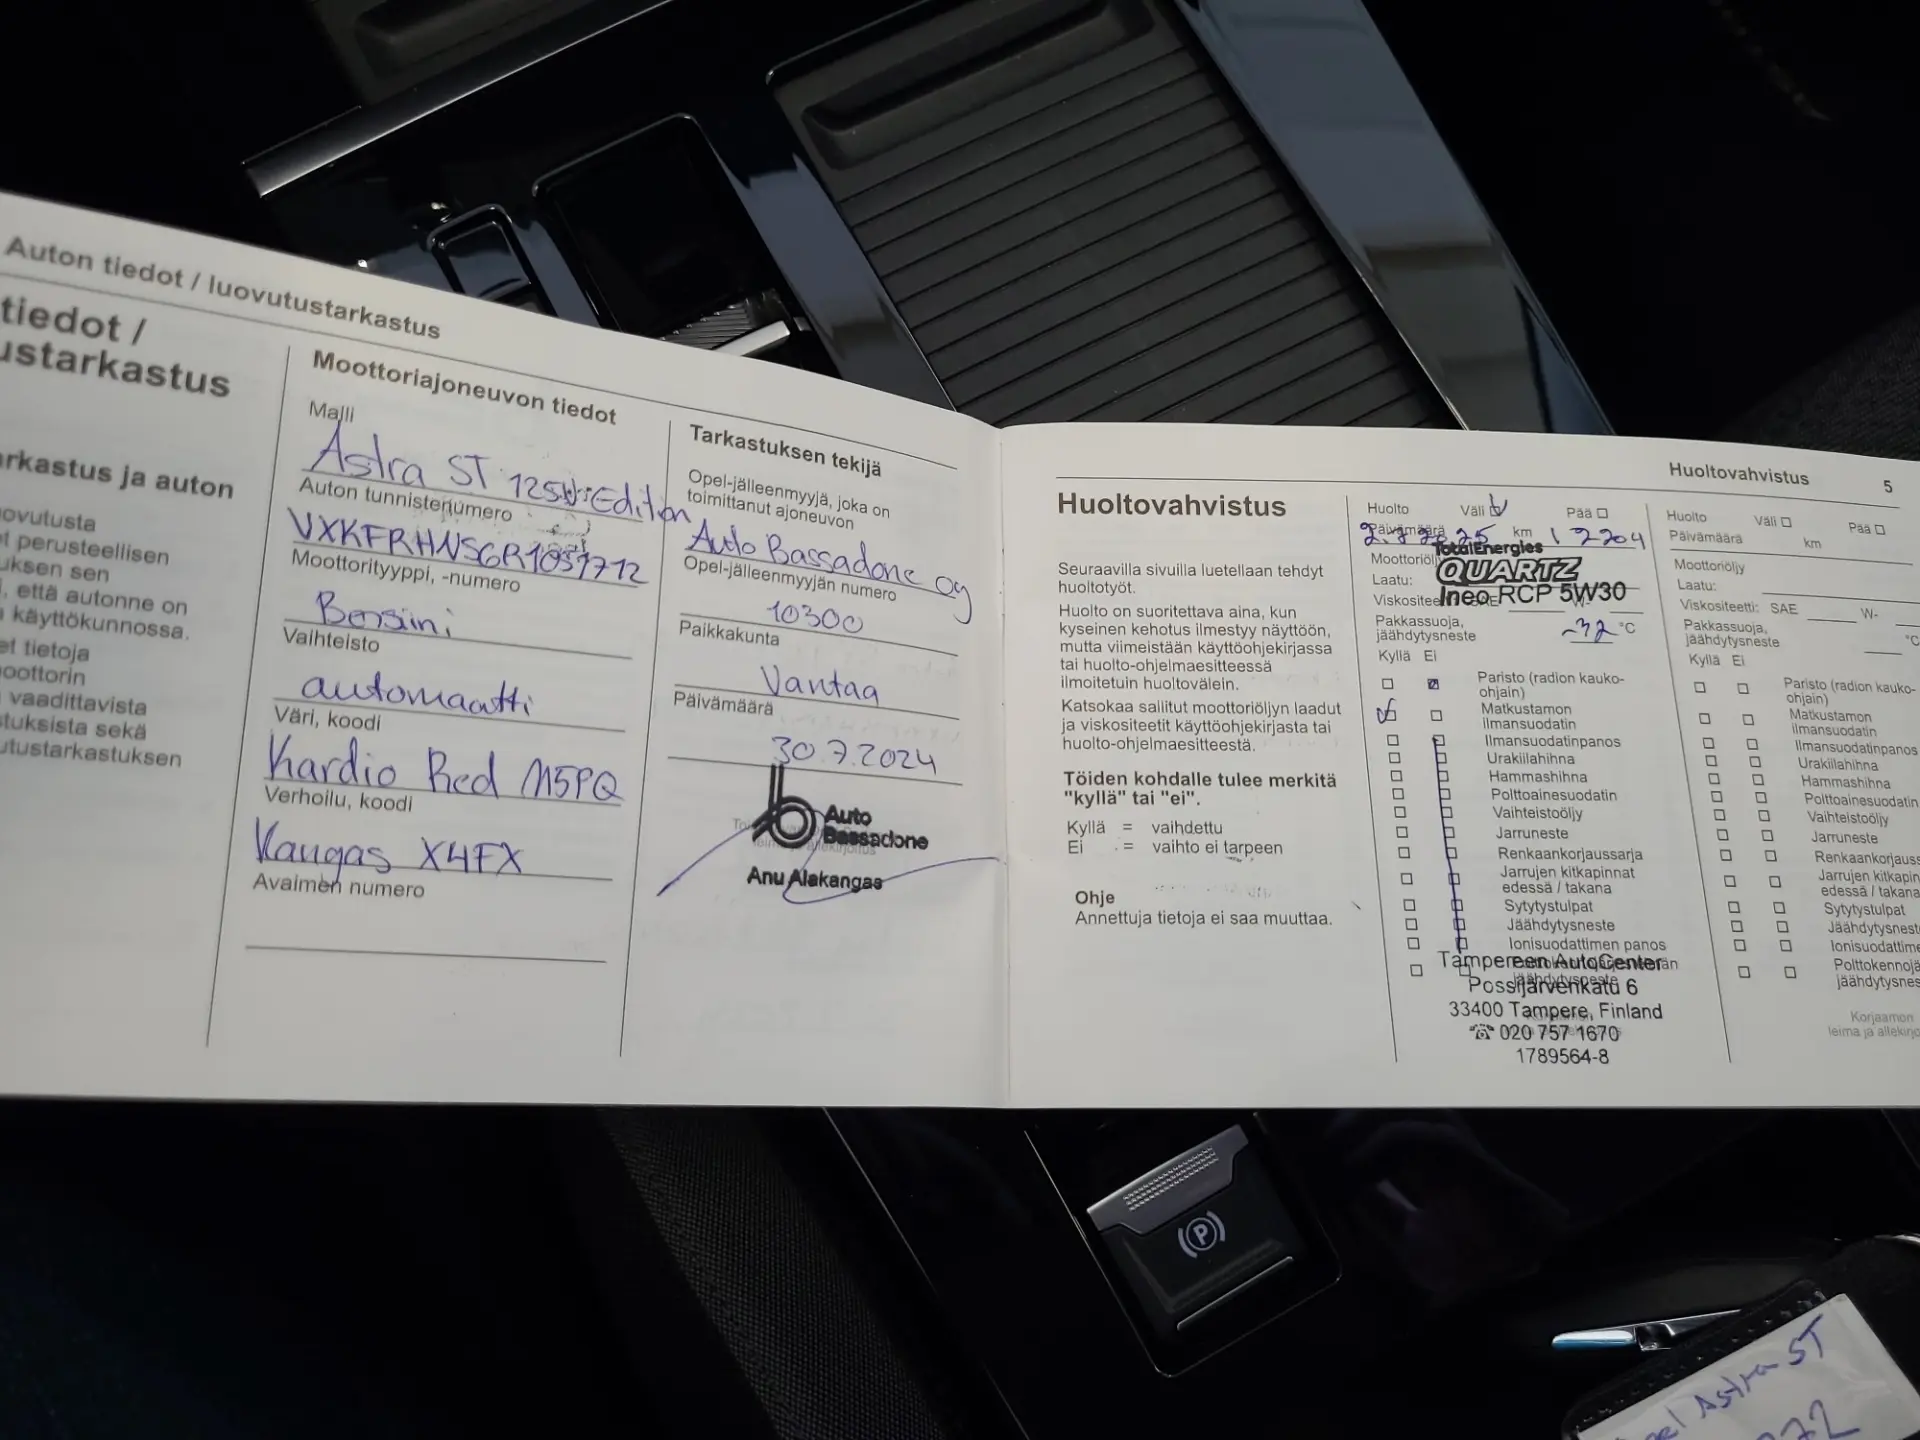 Auton tiedot / luovutustarkastus
tiedot /
ustarkastus
arkastus ja auton
ovutusta
perusteellisen
uksen sen
, että autonne on
käyttökunnossa.
et tietoja
moottorin
vaadittavista
stuksista sekä
utustarkastuksen
Moottoriajoneuvon tiedot
Malli
Astra ST 125 Edition
Auton tunnistenumero
Moottorityyppi, -numero
Bensiini
Vaihteisto
automaatti
Väri, koodi
Kardio Red M5PQ
Verhoilu, koodi
Kangas X4FX
Avaimen numero
Tarkastuksen tekijä
Opel-jälleenmyyjä, joka on
toimittanut ajoneuvon
Auto Bassadone oy
Opel-jälleenmyyjän numero
10300
Paikkakunta
Vantaa
Päivämäärä
30.7.2024
Auto
Bassadone
Anu Alakangas
Huoltovahvistus 5
Huoltovahvistus
Seuraavilla sivuilla luetellaan tehdyt
huoltotyöt.
Huolto on suoritettava aina, kun
kyseinen kehotus ilmestyy näyttöön,
mutta viimeistään käyttöohjekirjassa
tai huolto-ohjelmaesitteessä
ilmoitetuin huoltovälein.
Katsokaa sallitut moottoriöljyn laadut
ja viskositeetit käyttöohjekirjasta tai
huolto-ohjelmaesitteestä.
Töiden kohdalle tulee merkitä
"kyllä" tai "ei".
Kyllä = vaihdettu
Ei = vaihto ei tarpeen
Ohje
Annettuja tietoja ei saa muuttaa.
Huolto Väli Pää
Päivämäärä km 12204
Moottoriöljy
TotalEnergies
Laatu: QUARTZ
Ineo RCP 5W30
Viskositeetti: SAE W-
Pakkassuoja,
jäähdytysneste -32 °C
Kyllä Ei
Paristo (radion kauko-
ohjain)
Matkustamon
ilmansuodatin
Ilmansuodatinpanos
Urakiilahihna
Hammashihna
Polttoainesuodatin
Vaihteistoöljy
Jarruneste
Renkaankorjaussarja
Jarrujen kitkapinnat
edessä / takana
Sytytystulpat
Jäähdytysneste
Ionisuodattimen panos
jäähdytysneste
Tampereen AutoCenter
Possijärvenkatu 6
33400 Tampere, Finland
020 757 1670
1789564-8
Huolto Väli Pää
Päivämäärä km
Moottoriöljy
Laatu:
Viskositeetti: SAE W-
Pakkassuoja,
jäähdytysneste °C
Kyllä Ei
Paristo (radion kauko-
ohjain)
Matkustamon
ilmansuodatin
Ilmansuodatinpanos
Urakiilahihna
Hammashihna
Polttoainesuodatin
Vaihteistoöljy
Jarruneste
Renkaankorjauss
Jarrujen kitkapinna
edessä / takana
Sytytystulpat
Jäähdytysnest
Ionisuodattime
Polttokennojä
jäähdytysnes
Korjaamon
leima ja allekirjo
P
Astra ST